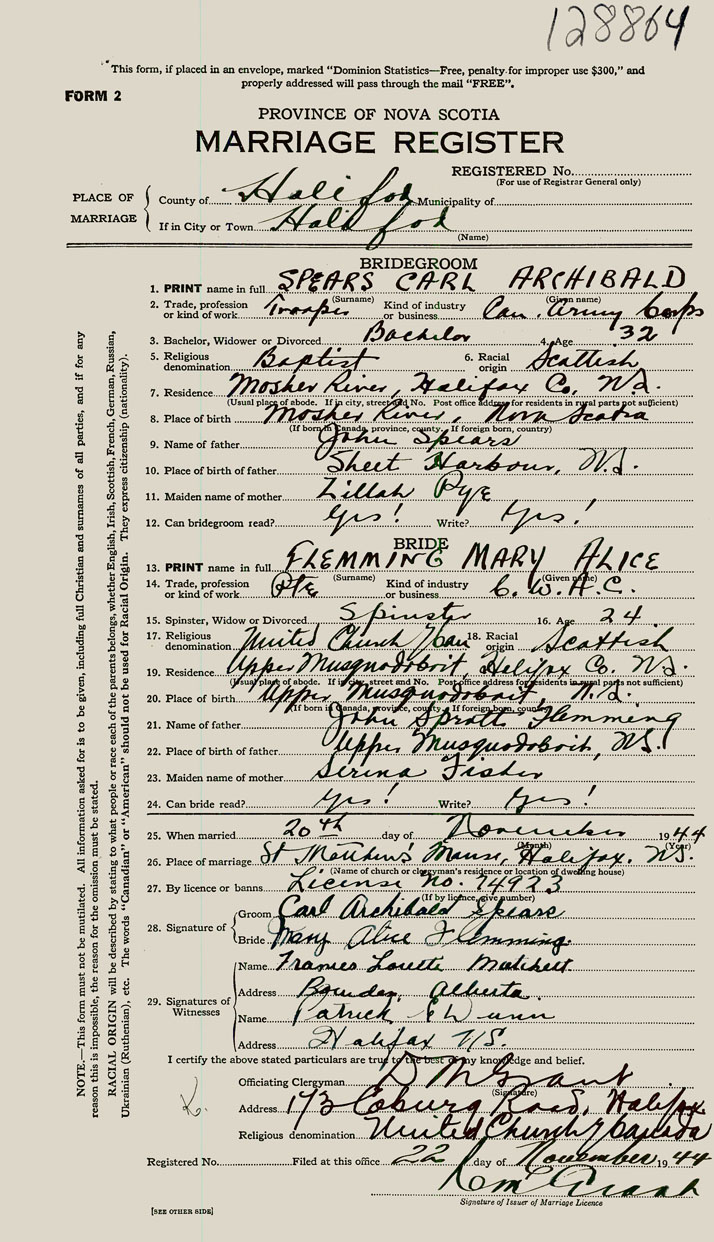 128864
"This form, if placed in an envelope, marked "Dominion Statistics—Free, penalty for improper use $300," and
properly addressed will pass through the mail "FREE".
FORM 2
PROVINCE OF NOVA SCOTIA
MARRIAGE REGISTER
REGISTERED No.
(For use of Registrar General only)
PLACE OF MARRIAGE
County of Halifax Municipality of
If in City or Town Halifax
(Name)
BRIDEGROOM
1. PRINT name in full SPEARS CARL ARCHIBALD
(Surname) (Given name)
2. Trade, profession or kind of work Trooper Kind of industry or business Can. Army Corps
3. Bachelor, Widower or Divorced Bachelor 4. Age 32
5. Religious denomination Baptist 6. Racial origin Scottish
7. Residence Mosher River, Halifax Co. N.S.
(Usual place of abode. If in city, street and No. Post office address for residents in rural parts not sufficient)
8. Place of birth Mosher River, Nova Scotia
(If born in Canada, province, county. If foreign born, country)
9. Name of father John Spears
10. Place of birth of father Sheet Harbour, N.S.
11. Maiden name of mother Zillah Pye
12. Can bridegroom read? Yes! Write? Yes!
BRIDE
13. PRINT name in full FLEMMING MARY ALICE
(Surname) (Given name)
14. Trade, profession or kind of work Pte Kind of industry or business C.W.A.C.
15. Spinster, Widow or Divorced Spinster 16. Age 24
17. Religious denomination United Church of Can 18. Racial origin Scottish
19. Residence Upper Musquodoboit, Halifax Co. N.S.
(Usual place of abode. If in city, street and No. Post office address for residents in rural parts not sufficient)
20. Place of birth Upper Musquodoboit, N.S.
(If born in Canada, province, county. If foreign born, country)
21. Name of father John Sprott Flemming
22. Place of birth of father Upper Musquodoboit, N.S.
23. Maiden name of mother Serena Fisher
24. Can bride read? Yes! Write? Yes!
25. When married 20th day of November 1944
(Month) (Year)
26. Place of marriage St Matthew's Manse, Halifax. N.S.
(Name of church or clergyman's residence or location of dwelling house)
27. By licence or banns License No. 74923
(If by licence, give number)
28. Signature of
Groom Carl Archibald Spears
Bride Mary Alice Flemming
29. Signatures of Witnesses
Name Frances Matchett
Address Bowden, Alberta
Name Patrick Dunn
Address Halifax N.S.
I certify the above stated particulars are true to the best of my knowledge and belief.
Officiating Clergyman D M Grant
(Signature)
Address 173 Coburg Road, Halifax
Religious denomination United Church of Canada
Registered No. Filed at this office 22 day of November 1944
Signature of Issuer of Marriage Licence
[SEE OTHER SIDE]
K.
NOTE.—This form must not be mutilated. All information asked for is to be given, including full Christian and surnames of all parties, and if for any
reason this is impossible, the reason for the omission must be stated.
RACIAL ORIGIN will be described by stating to what people or race each of the parents belongs, whether English, Irish, Scottish, French, German, Russian,
Ukrainian (Ruthenian), etc. The words "Canadian" or "American" should not be used for Racial Origin. They express citizenship (nationality).